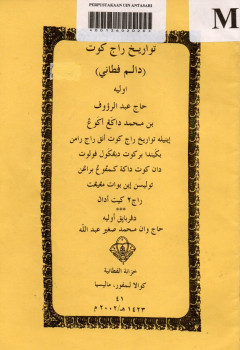 PERPUSTAKAAN UIN ANTASARI
M
تواريخ راج كوت
(دالم فطاني)
اوليه
حاج عبد الرؤوف
بن محمد داكڠ اكوڠ
اينيله تواريخ راج كوت أنق راج رامن
بݢيندا بركوت دبڠكول ڤولوت
دان كوت داكه كمڤوڠ براڠن
توليسن اين بوات مڠيڠت
راج٢ كيت أدال
***
دڤربايق أوليه
حاج وان محمد صغير عبد الله
خزانة الفطانية
كوالا لمڤور، ماليسيا
٤١
١٤٢٣ هـ/٢٠٠٢ م